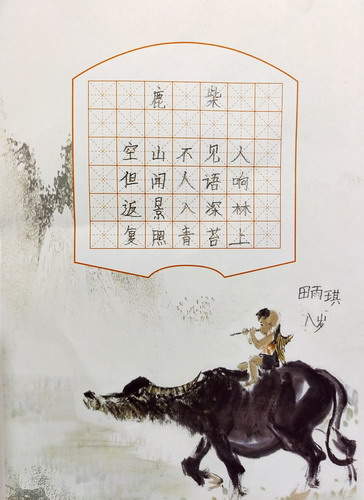 鹿柴
空山不见人
但闻人语响
返景入深林
复照青苔上
田雨琪
八岁